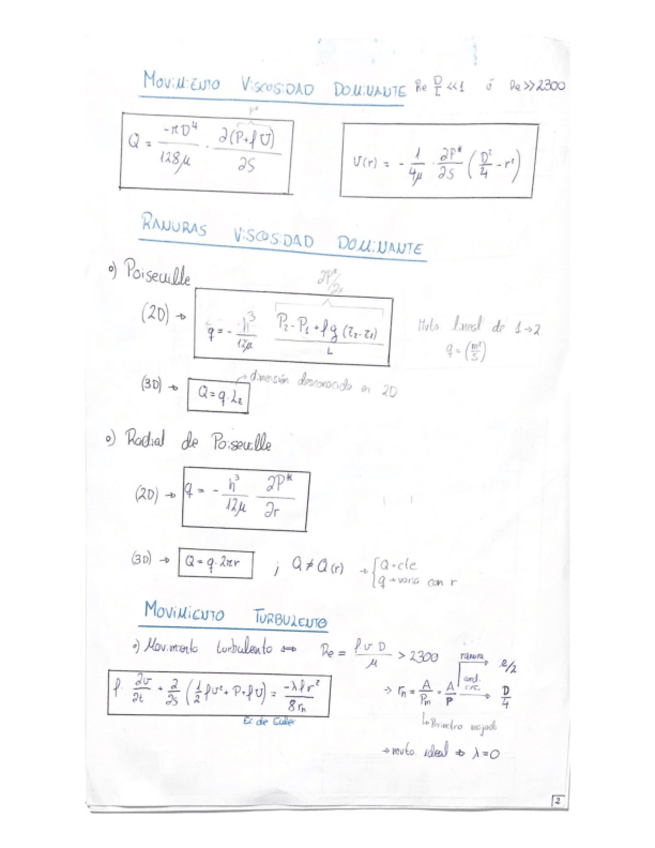 MOVIMIENTO VISCOSIDAD DOMINANTE Re D/L <<1 ó Re>>2300
P*
Q = -πD⁴/128μ · ∂(P+ρU)/∂S
U(r) = - 1/4μ · ∂P*/∂S (D²/4 - r²)
RANURAS VISCOSIDAD DOMINANTE
•) Poiseuille
∂P*/∂x
(2D) → q = - h³/12μ P₂-P₁+ρg(z₂-z₁)/L
Muto lineal de 1→2
q=(m²/S)
(3D) → Q=q·L₂ → dimensión desconocida en 2D
•) Radial de Poiseuille
(2D) → q = - h³/12μ ∂P*/∂r
(3D) → Q=q·2πr ; Q≠Q(r) → {Q=cte
q→varia con r
MOVIMIENTO TURBULENTO
•) Movimiento turbulento ⇔ Re = ρvD/μ > 2300
ρ·∂v/∂t + ∂/∂S (½ρv²+P+ρU) = -λρv²/8rₕ
Ec de Euler
→ rₕ = A/Pₘ = A/P
ranura → e/2
cond. circ. → D/4
↳Perímetro mojado
→ muto. ideal ⇒ λ=0
2